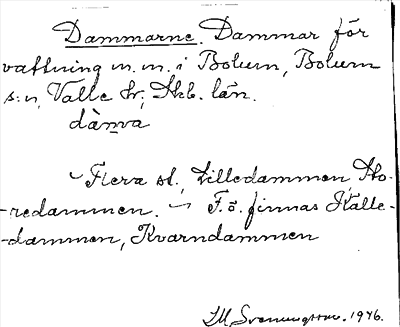 Dammarne. Dammar för
vattning m.m. i Bolum, Bolum
s:n, Valle hr; Skb. län.
dàm̲va
Flera st., Lilledammen, Sto-
-redammen. — F.ö. finnas Källe-
-dammen, Kvarndammen
1946.